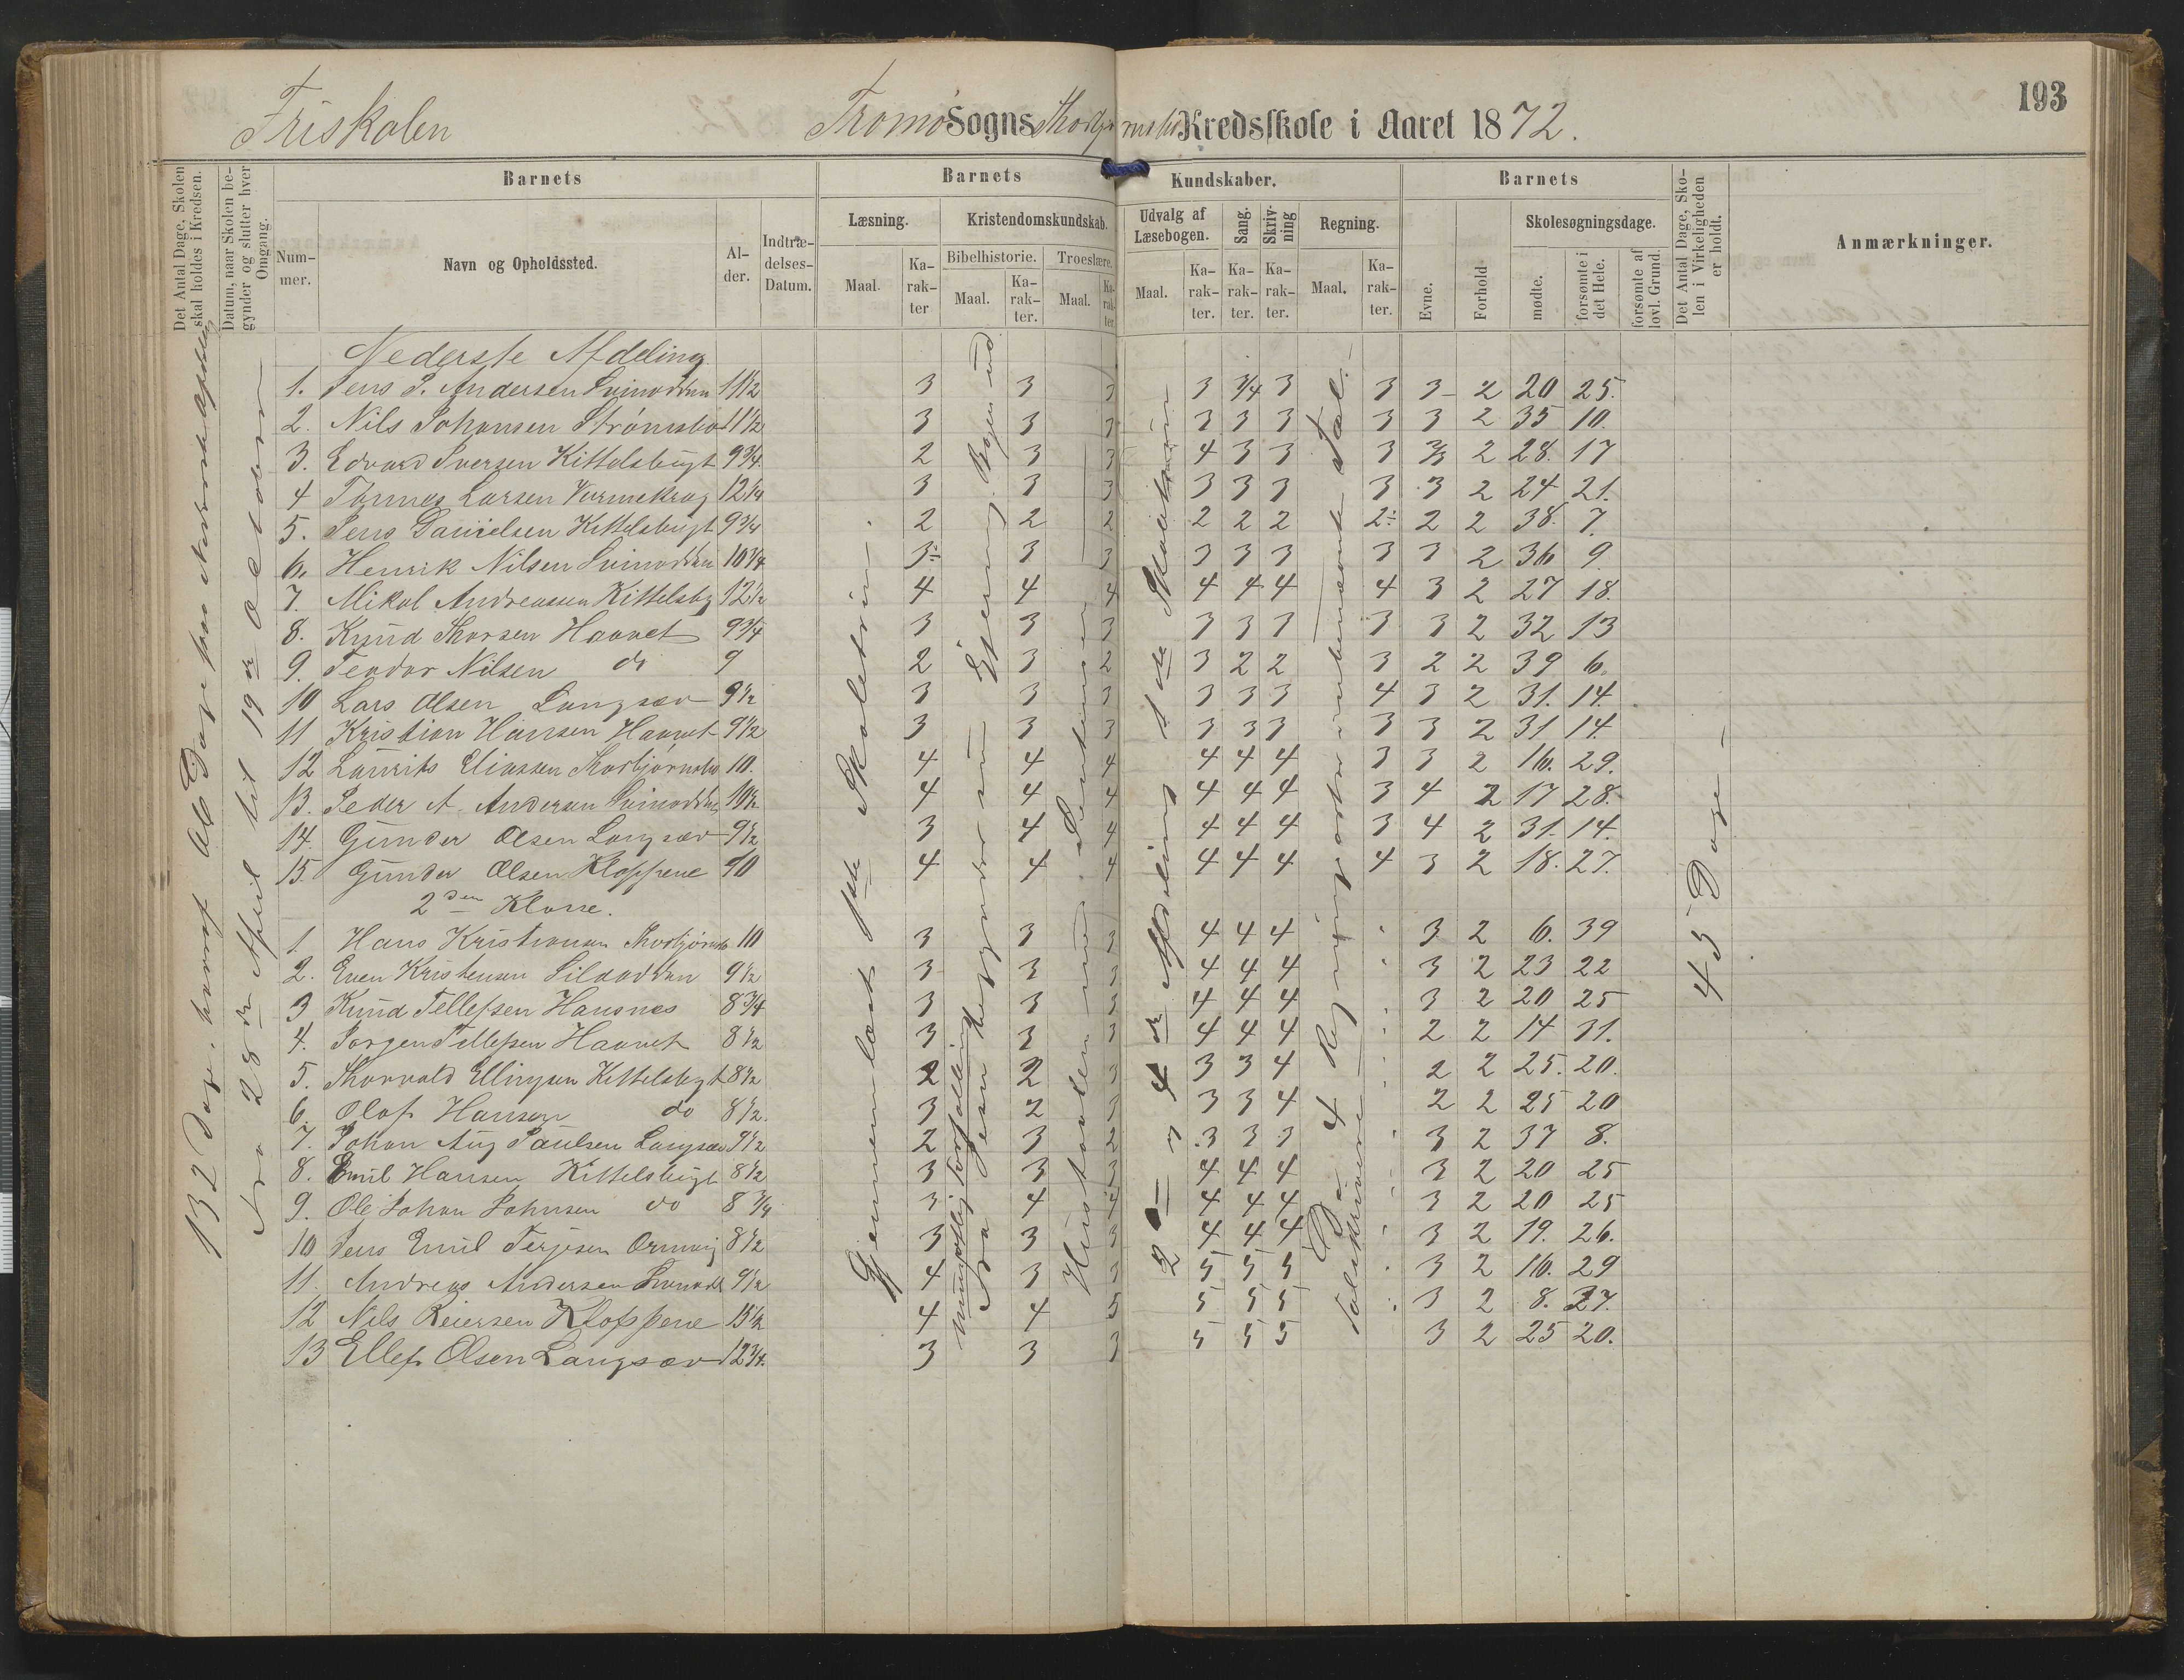 193
Friskolen Tromø Sogns Kredsskole i Aaret 1872.
Det Antal Dage, Skolen skal holdes i Kredsen.
Datum, naar Skolen begynder og slutter hver Omgang.
Barnets Barnets Kundskaber. Barnets
Nummer. Navn og Opholdssted. Alder. Indtrædelses-Datum.
Læsning. Kristendomskundskab. Udvalg af Læsebogen. Sang. Skrivning Regning.
Bibelhistorie. Troeslære.
Maal. Karakter Maal. Karakter. Maal. Karakter. Maal. Karakter. Karakter. Karakter. Maal. Karakter.
Evne. Forhold Skolesøgningsdage. mødte. forsømte i det Hele. forsømte af lovl. Grund.
Det Antal Dage, Skolen i Virkeligheden er holdt.
Anmærkninger.
132 Dage, hvoraf
fra 28de April til 19de October
Gjennemlæst 1ste Skoletrin.
45 Dage
Nederste Afdeling
1. Jens P. Andersen Svinodden 11 1/2 3 3 3 3 3/4 3 3 3 2 20 25.
2. Nils Johansen Strømsbo 11 1/2 3 3 3 3 3 3 3 3 2 35 10.
3. Edvard Iversen Kittelsbugt 9 3/4 2 3 3 4 3 3 3 2/3 2 28. 17
4 Tønnes Larsen 12 1/4 3 3 3 3 3 3 3 3 2 24 21.
5. Jens Danielsen Kittelsbugt 9 3/4 2 2 2 2 2 2 2÷ 2 2 38. 7.
6. Henrik Nilsen Svinodden 10 3/4 3÷ 3 3 3 3 3 3 3 2 36 9.
7. Mikal Andreassen Kittelsbg 12 1/2 4 4 4 4 4 4 4 3 2 27 18.
8. Knud Thorsen Havnet 9 3/4 3 3 3 3 3 3 3 3 2 32 13
9. Teodor Nilsen do 9 2 3 2 3 2 2 3 2 2 39 6.
10 Lars Olsen Langsæv 9 1/2 3 3 3 3 3 3 4 3 2 31. 14.
11 Kristian Hansen Havnet 9 1/2 3 3 3 3 3 3 3 3 2 31 14.
12 Laurits Eliassen Thorbjørnsbo 10. 4 4 4 4 4 4 3 3 2 16. 29.
13. Peder A. Andersen Svinodden 10 1/2 4 4 4 4 4 4 3 4 2 17 28.
14. Gunder Olsen Langsæv 9 1/2 3 4 4 4 4 4 3 4 2 31. 14.
15. Gunder Olsen Kloppene 10 4 4 4 4 4 4 4 3 2 18. 27.
2den Klasse.
1 Hans Kristiansen 10 3 3 3 4 4 4 3 2 6. 39
2. Even Kristensen Sildodden 9 1/2 3 3 3 4 4 4 3 2 23 22
3 Knud Tellefsen Hausnes 8 3/4 3 3 3 4 4 4 3 2 20 25
4. Jørgen Tellefsen Havnet 8 1/2 3 3 3 4 4 4 2 2 14 31.
5. Thorvald Ellingsen Kittelsbgt 8 1/2 2 2 3 3 3 4 2 2 25. 20.
6. Olaf Hansen do 8 1/2. 3 2 3 3 3 4 2 2 25 20
7. Johan Aug Paulsen Langsæv 9 1/2 2 3 2 3 3 3 3 2 37 8.
8. Emil Hansen Kittelsbugt 8 1/2 3 3 3 4 4 4 3 2 20 25
9. Ole Johan Johnsen do 8 3/4 3 4 4 4 4 4 3 2 20 25
10 Jens Emil Terjesen 8 1/2 3 3 3 4 4 4 3 2 19. 26.
11. Andreas Andersen 9 1/2 4 3 3 5 5 5 3 2 16. 29
12 Nils Reiersen Kloppene 15 1/2 4 4 5 5 5 5 3 2 8. 27.
13 Ellef Olsen Langsæv 12 3/4. 3 3 3 5 5 5 3 2 25 20.